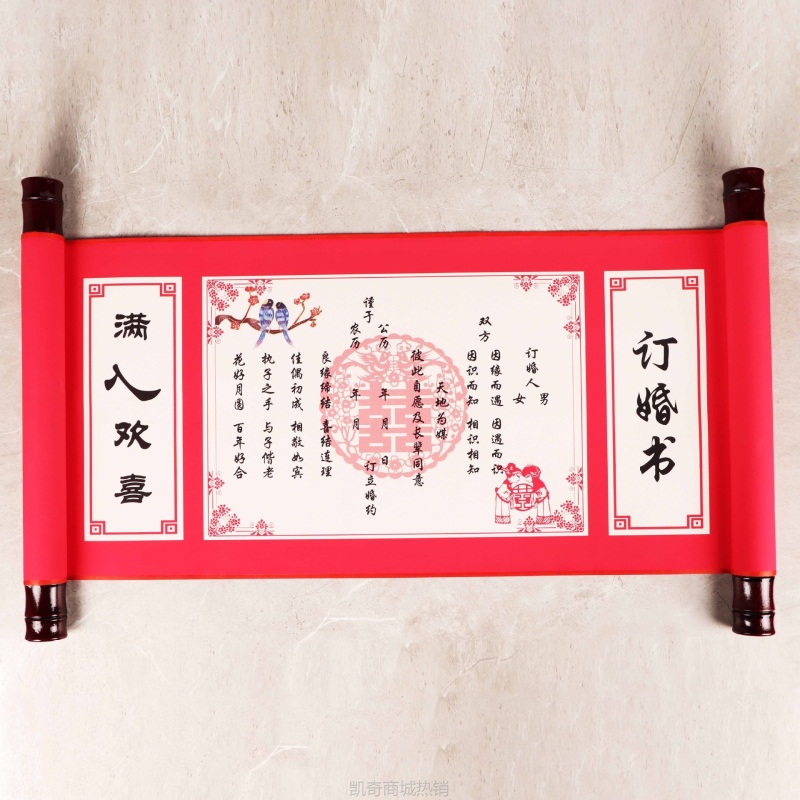 订婚书
订婚人 男
女
双方 因缘而遇 因遇而识
因识而知 相识相知
天地为媒
彼此自愿及长辈同意
谨于 公历 年 月 日
农历 年 月
订立婚约
良缘缔结 喜结连理
佳偶初成 相敬如宾
执子之手 与子偕老
花好月圆 百年好合
满入欢喜
凯奇商城热销